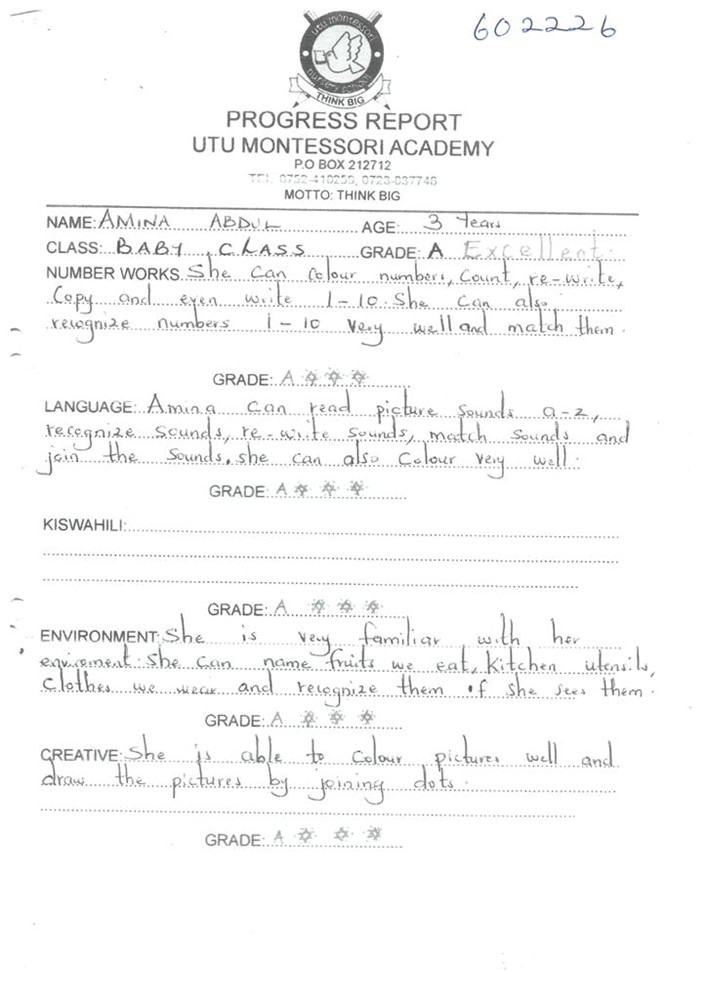 602226
utu montessori
nursery school
THINK BIG
PROGRESS REPORT
UTU MONTESSORI ACADEMY
P.O BOX 212712
TEL: 0752-410259, 0723-037746
MOTTO: THINK BIG
NAME: AMINA ABDUL AGE: 3 Years
CLASS: BABY CLASS GRADE: A Excellent.
NUMBER WORKS. She Can Colour numbers, Count, re-write,
Copy and even write 1-10. She Can also
recognize numbers 1-10 very well and match them.
GRADE: A
LANGUAGE: Amina Can read picture sounds a-z,
recognize sounds, re-write sounds, match sounds and
join the sounds. she can also Colour very well.
GRADE: A
KISWAHILI:
GRADE: A
ENVIRONMENT: She is very familiar with her
enviroment. She Can name fruits we eat, Kitchen utensils,
Clothes we wear and recognize them if she sees them.
GRADE: A
CREATIVE: She is able to Colour pictures well and
draw the pictures by joining dots.
GRADE: A